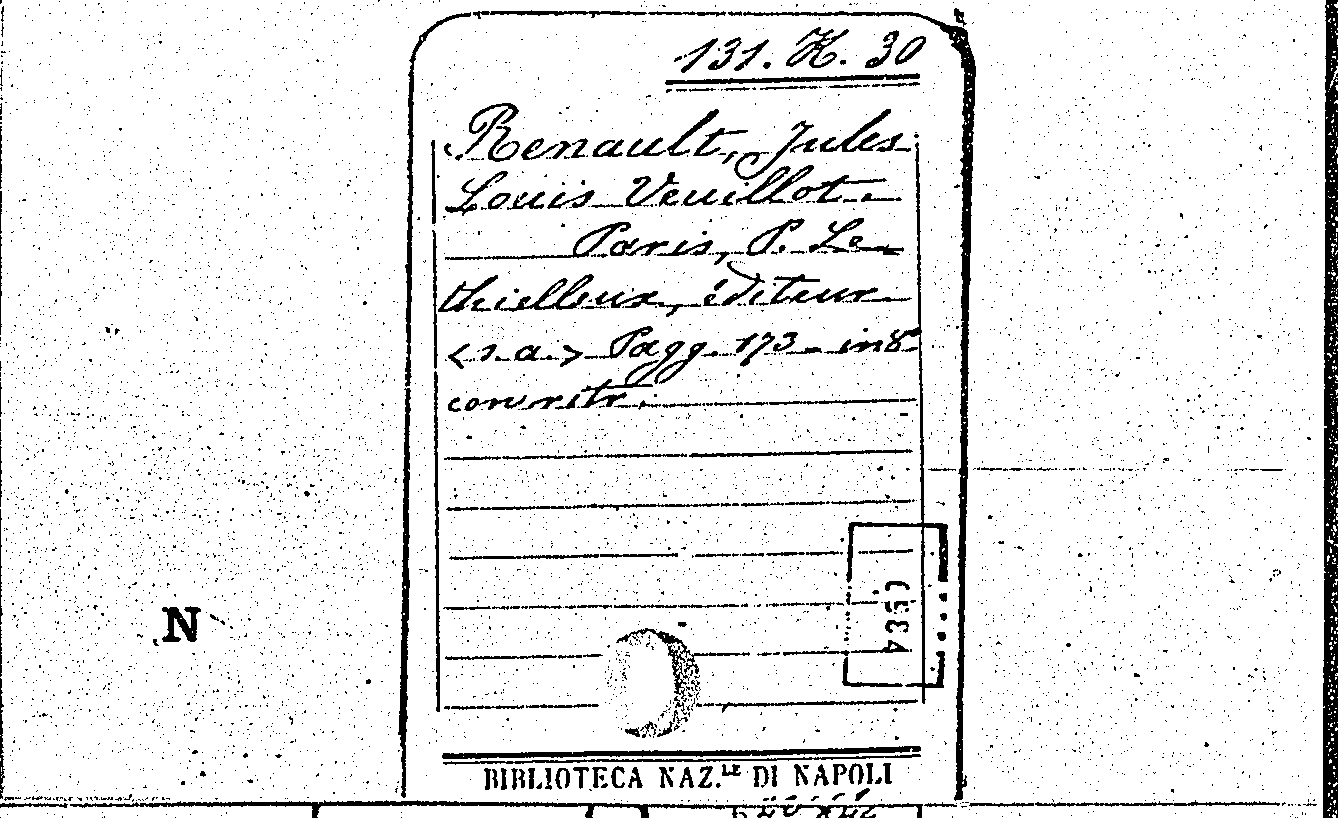 131. H. 30
Renault, Jules
Louis Veuillot.
Paris, P. Le-
thielleux, éditeur
<s.a.> Pagg. 173 - in 8°
con ritr.
N
BIBLIOTECA NAZ.LE DI NAPOLI